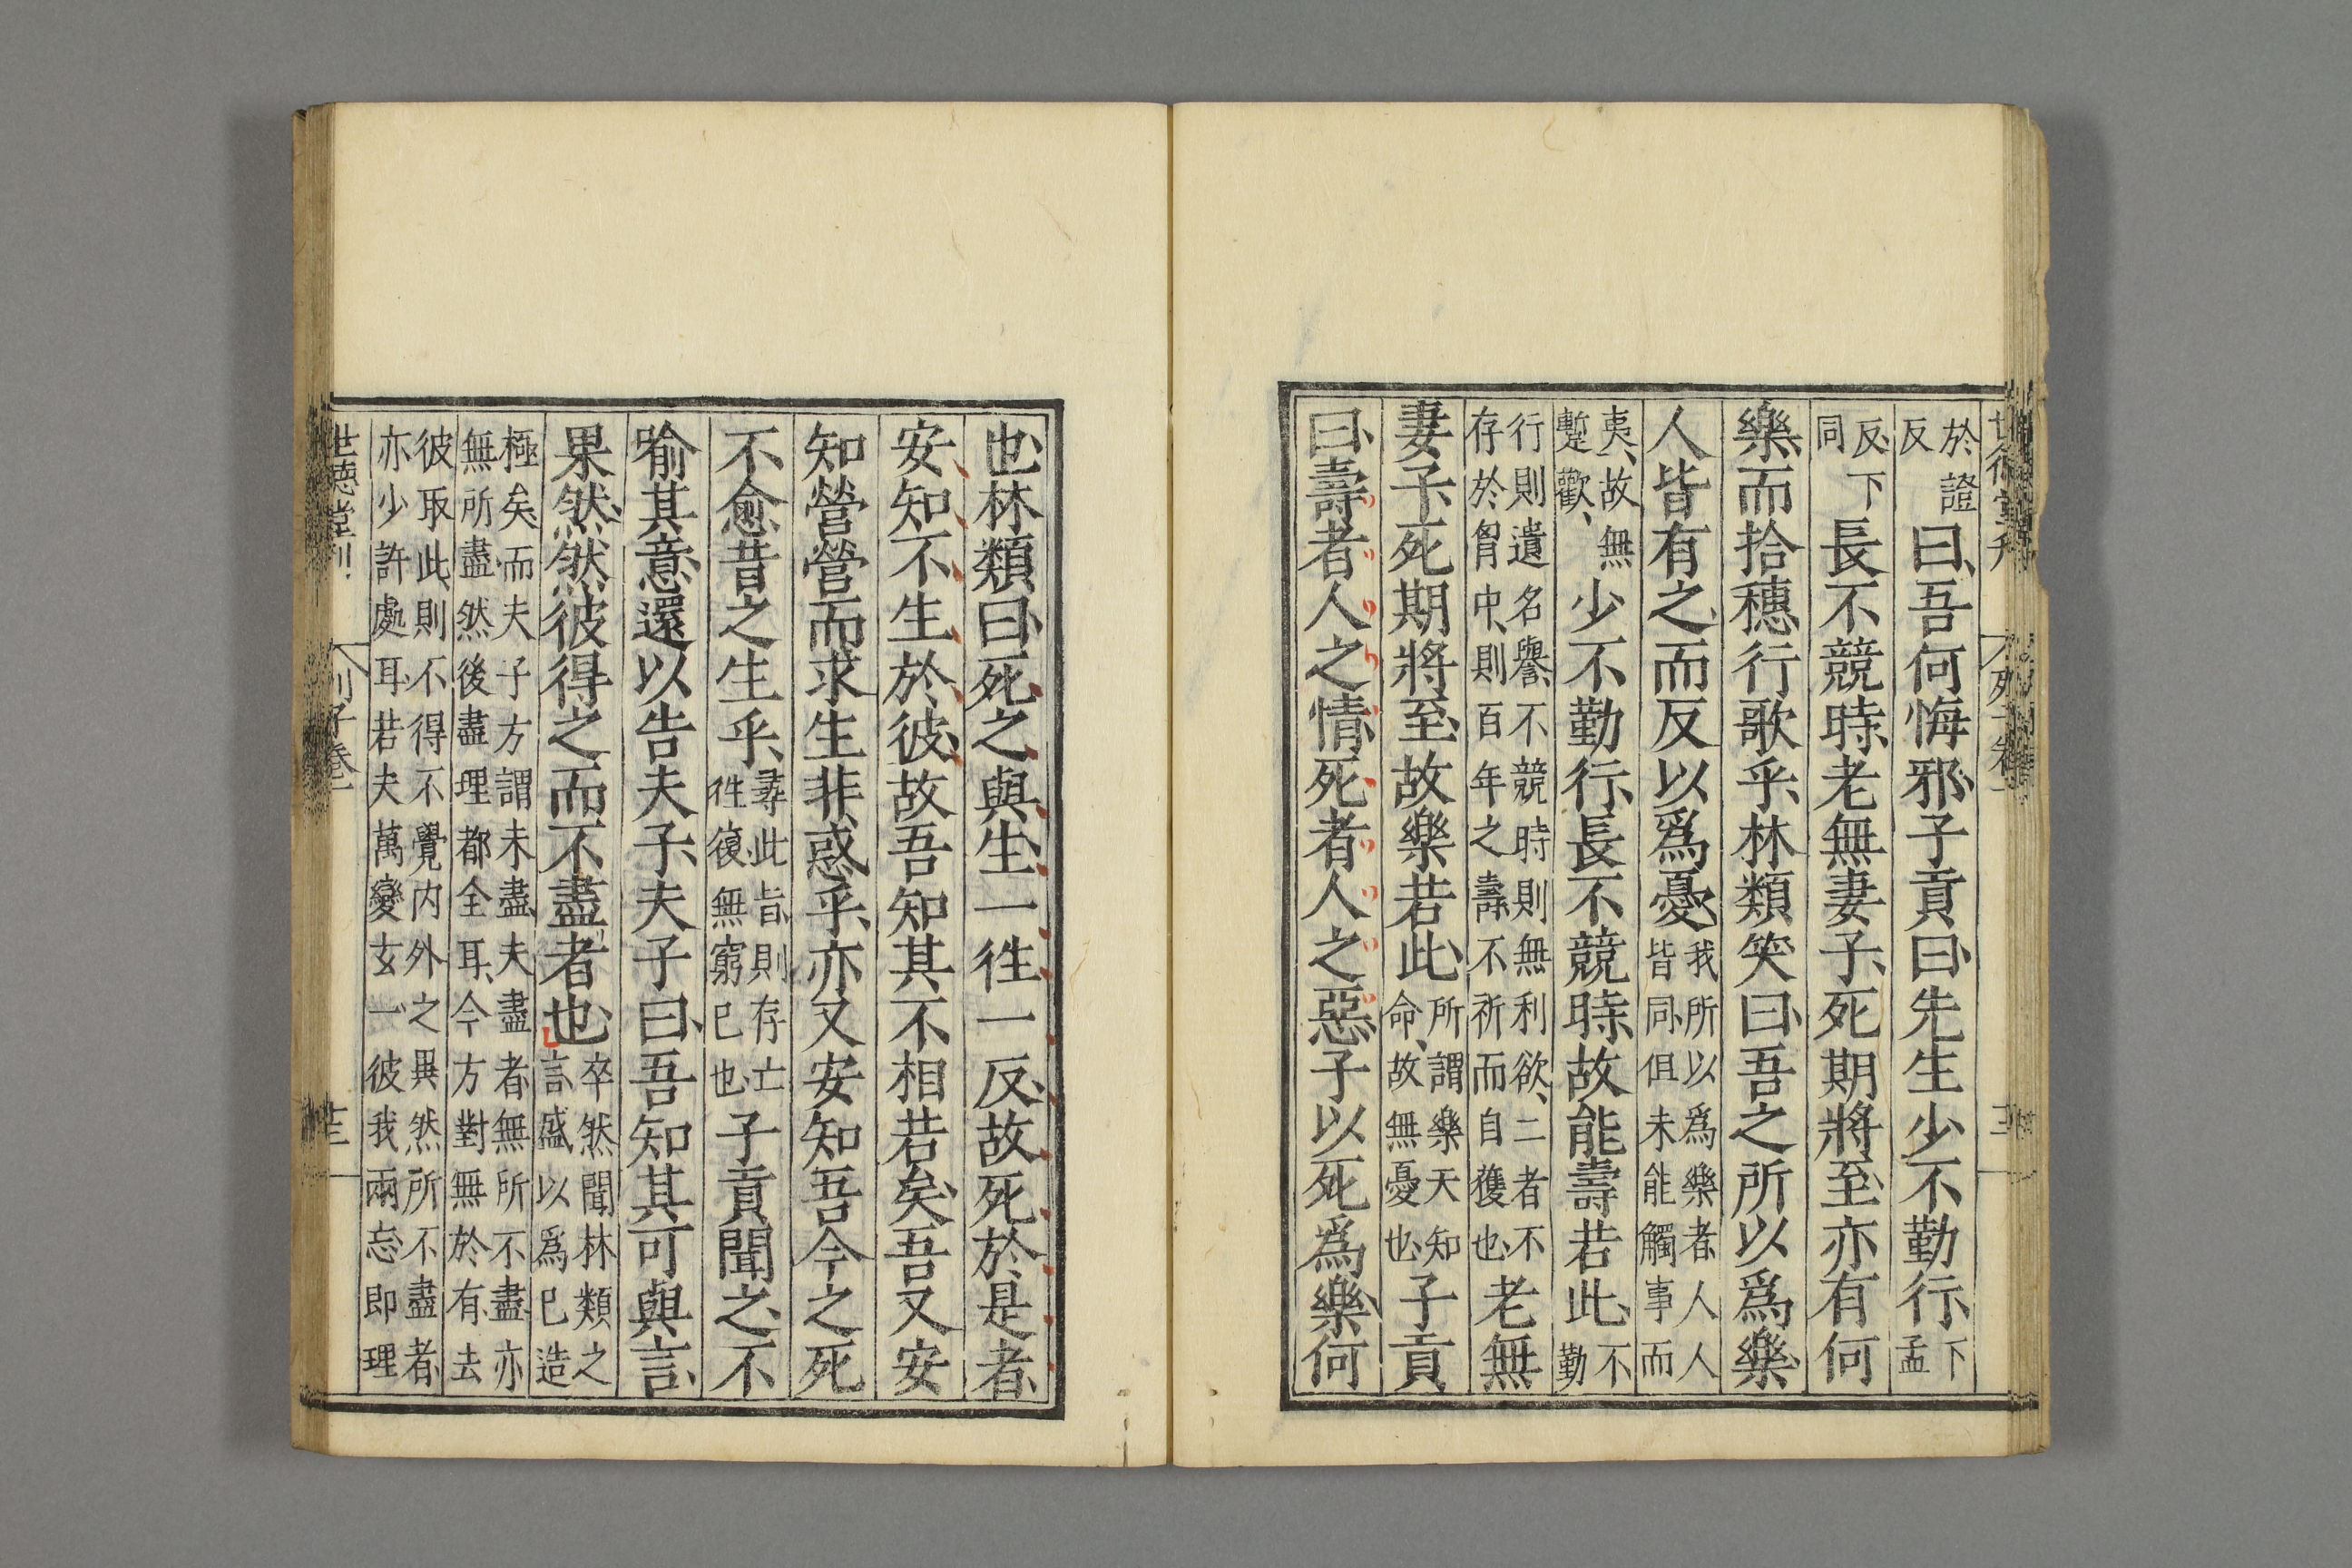 於證反曰吾何悔邪子貢曰先生少不勤行下孟
反下同長不競時老無妻子死期將至亦有何
樂而拾穗行歌乎林類笑曰吾之所以爲樂
人皆有之而反以爲憂我所以爲樂者人人皆同但未能觸事而
夷故無蹔歡少不勤行長不競時故能壽若此不勤
行則遺名譽不競時則無利欲二者不存於胷中則百年之壽不祈而自獲也老無
妻子死期將至故樂若此所謂樂天知命故無憂也子貢
曰壽者人之情死者人之惡子以死爲樂何
也林類曰死之與生一徃一反故死於是者
安知不生於彼故吾知其不相若矣吾又安
知營營而求生非惑乎亦又安知吾今之死
不愈昔之生乎尋此旨則存亡徃復無窮已也子貢聞之不
喻其意還以告夫子夫子曰吾知其可與言
果然然彼得之而不盡者也卒然聞林類之言盛以爲已造
極矣而夫子方謂未盡夫盡者無所不盡亦無所盡然後盡理都全耳今方對無於有去
彼取此則不得不覺内外之異然所不盡者亦少許處耳若夫萬變玄一彼我兩忘即理
世德堂刊
列子卷一
十三